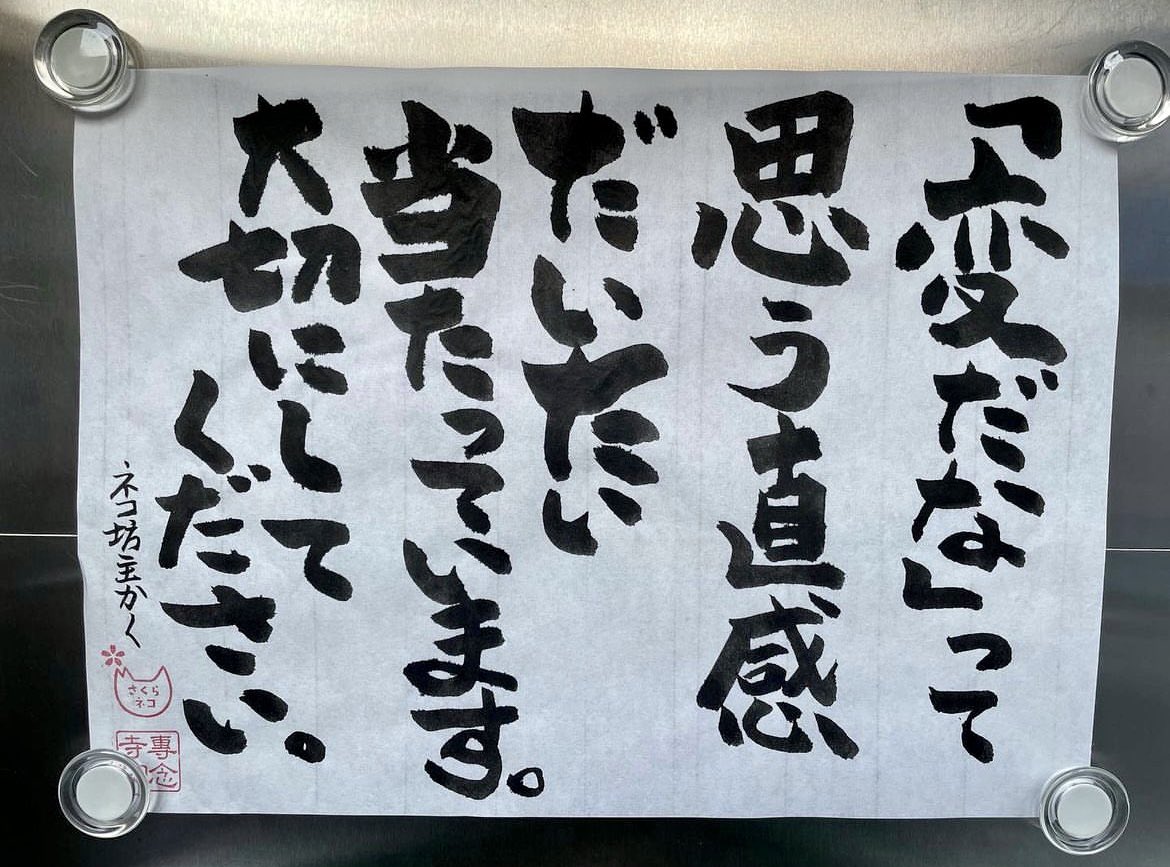 「変だな」って
思う直感
だいたい
当たっています。
大切にして
ください。
ネコ坊主かく
さくら
ネコ
專念
寺